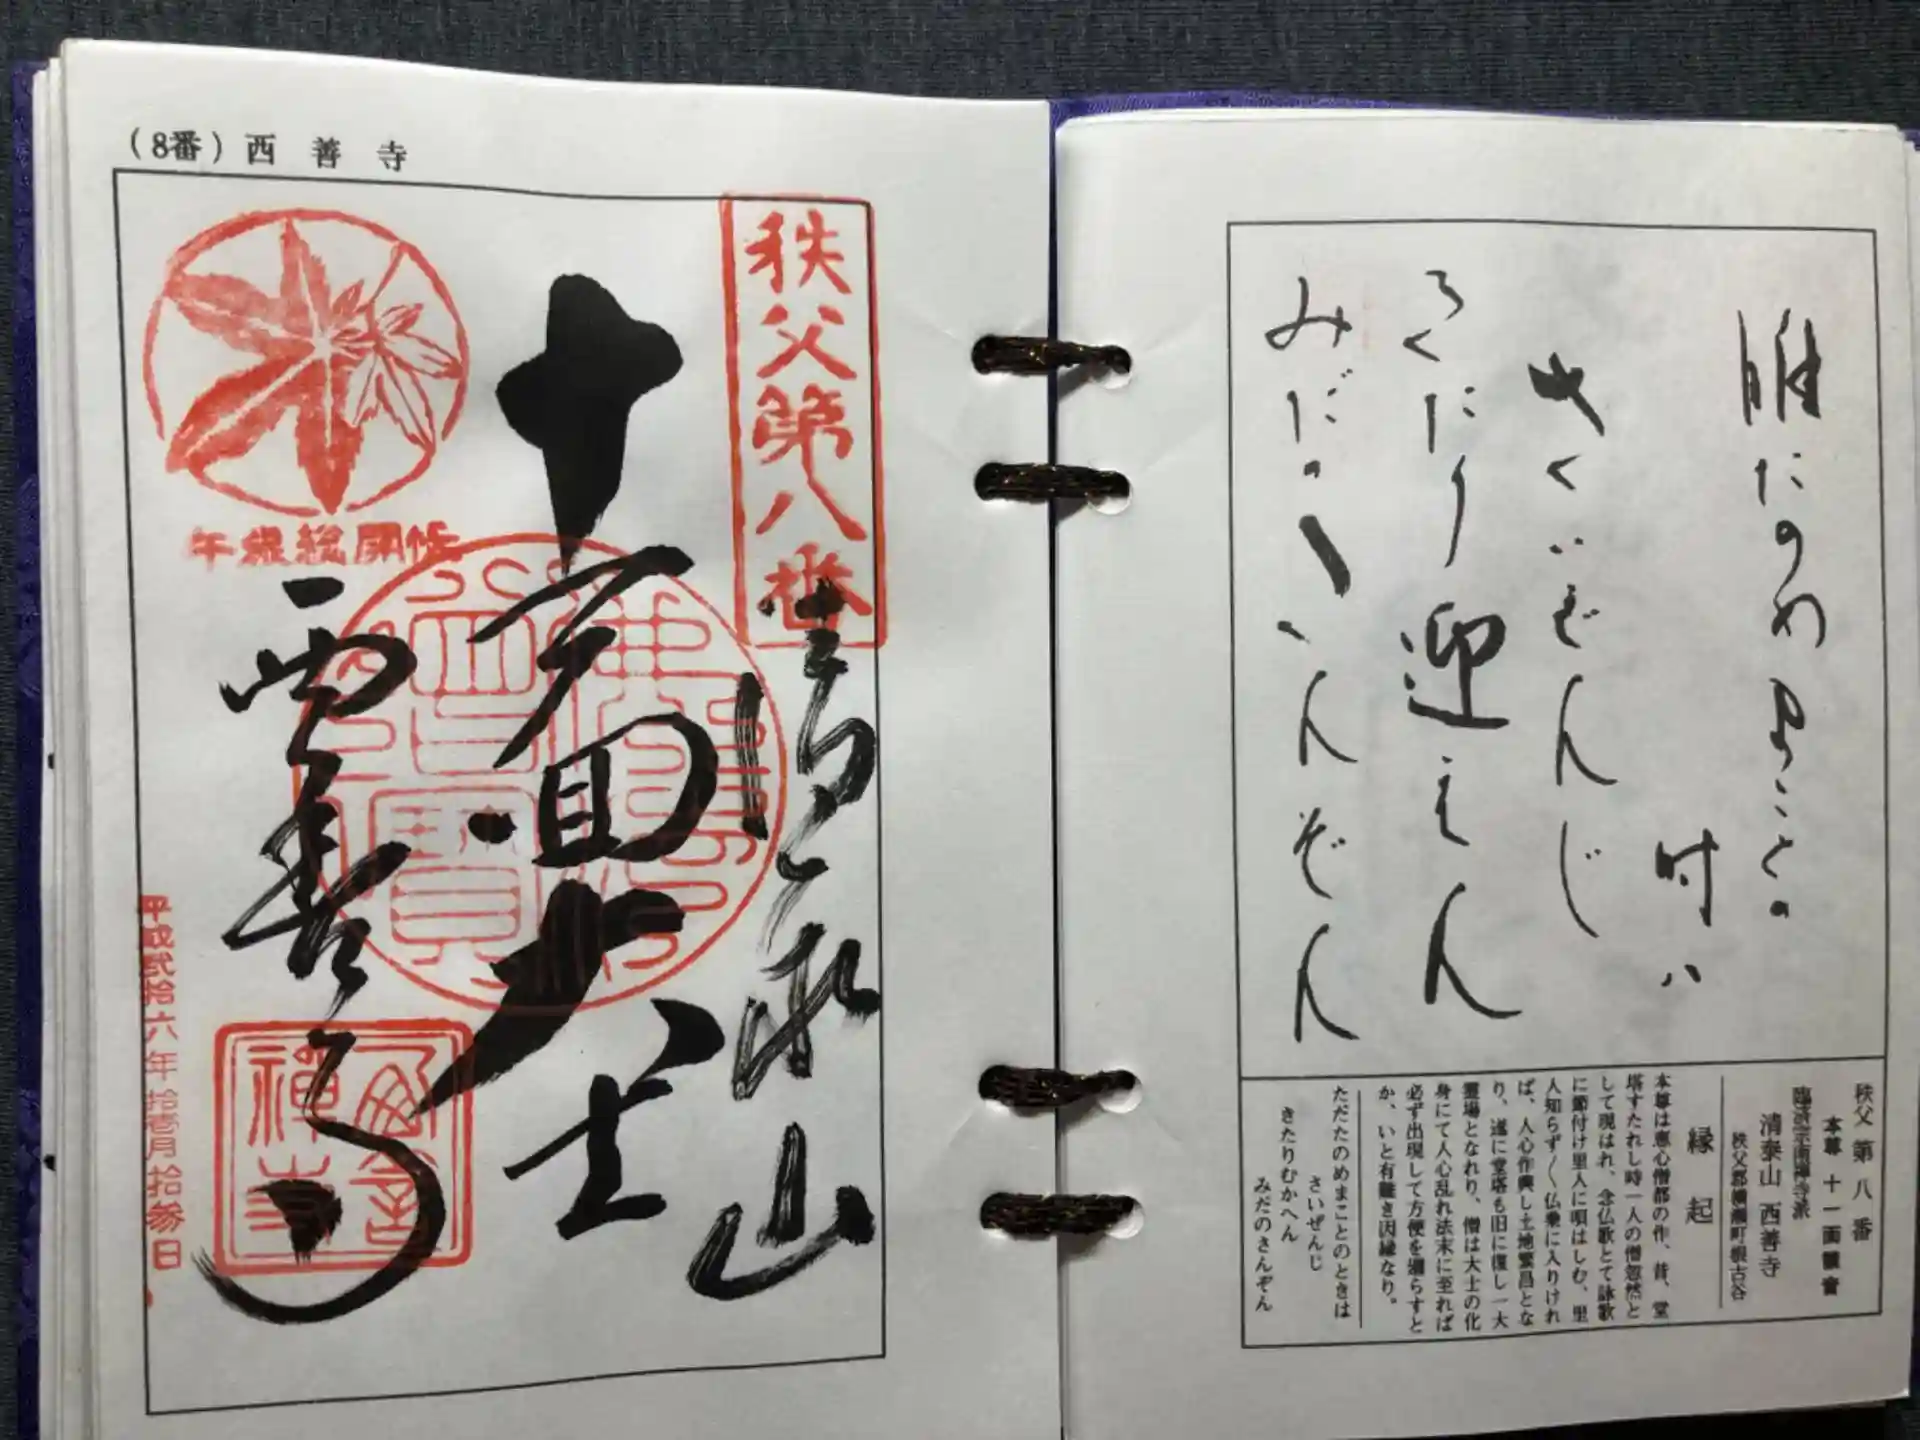 (8番)西善寺
秩父第八番
十一面大士
西善寺
午歳総開帳
平成弐拾六年拾壱月拾参日
たのめまことの
時ハ
さいぜんじ
きたり迎えん
みだのさんぞん
秩父第八番
本尊 十一面観音
臨済宗南禅寺派
清泰山 西善寺
秩父郡横瀬町根古谷
縁起
本尊は恵心僧都の作、昔、堂
塔すたれし時一人の僧忽然と
して現はれ、念仏歌とて詠歌
に節付け里人に唄はしむ、里
人知らず〱仏乗に入りけれ
ば、人心作興し土地繁昌とな
り、遂に堂塔も旧に復し一大
霊場となれり、僧は大士の化
身にて人心乱れ法末に至れば
必ず出現して方便を廻らすと
か、いと有難き因縁なり。
ただたのめまことのときは
さいぜんじ
きたりむかへん
みだのさんぞん